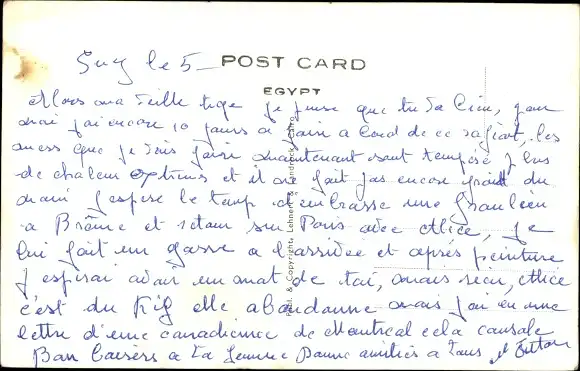 Suez le 5 —
POST CARD
EGYPT
Alors ma vieille tige je pense que tu va bien, pour
moi j'ai encore 10 jours a faire a bord de ce rafiart, les
mers que je vais faire maintenant sont tempéré plus
de chaleur et il ne fait pas encore froid du
moins j'espère le temp d'embrasse une
a Brême et retour sur Paris avec Alice, je
lui fait un a l'arrivée et après peinture
j'espérai avoir un mot de toi, mais rien, Alice
c'est du Kif elle abandonne mais j'ai eu une
lettre d'une canadienne de Montreal cela console
Bon baisers a ta femme Bonne amitiés a tous
Publ. & Copyright, Lehnert & Landrock, Cairo